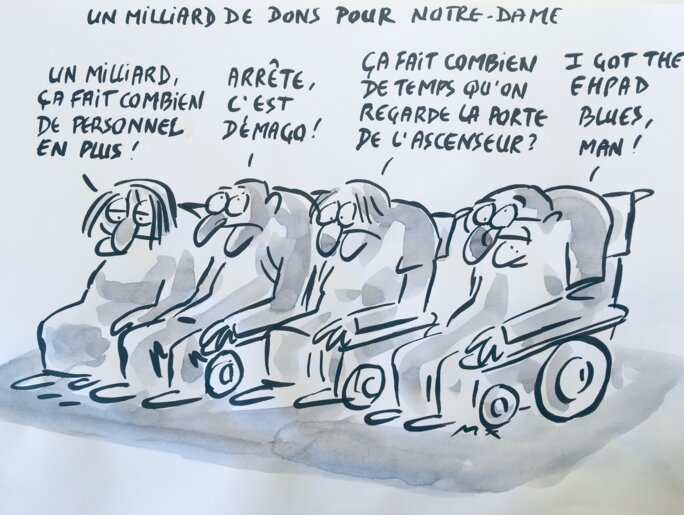 UN MILLIARD DE DONS POUR NOTRE-DAME
UN MILLIARD,
ÇA FAIT COMBIEN
DE PERSONNEL
EN PLUS !
ARRÊTE,
C'EST
DÉMAGO !
ÇA FAIT COMBIEN
DE TEMPS QU'ON
REGARDE LA PORTE
DE L'ASCENSEUR ?
I GOT THE
EHPAD
BLUES,
MAN !